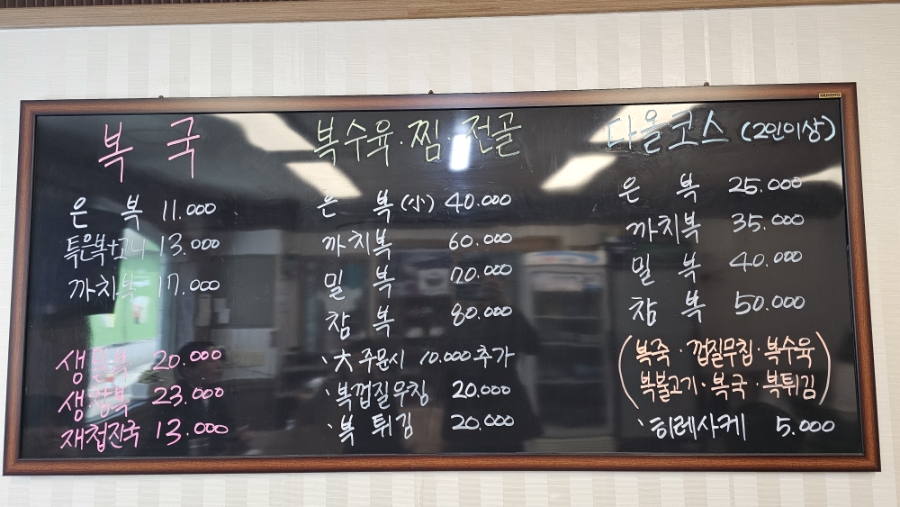 복 국
은 복 11.000
특은복+고니 13.000
까치복 17.000
생밀복 20.000
생참복 23.000
재첩진국 13.000
복수육·찜·전골
은 복 (小) 40.000
까치복 60.000
밀 복 70.000
참 복 80.000
·大 주문시 10.000 추가
·복껍질무침 20.000
·복 튀김 20.000
다올코스 (2인이상)
은 복 25.000
까치복 35.000
밀 복 40.000
참 복 50.000
(복죽·껍질무침·복수육
복불고기·복국·복튀김)
·히레사케 5.000